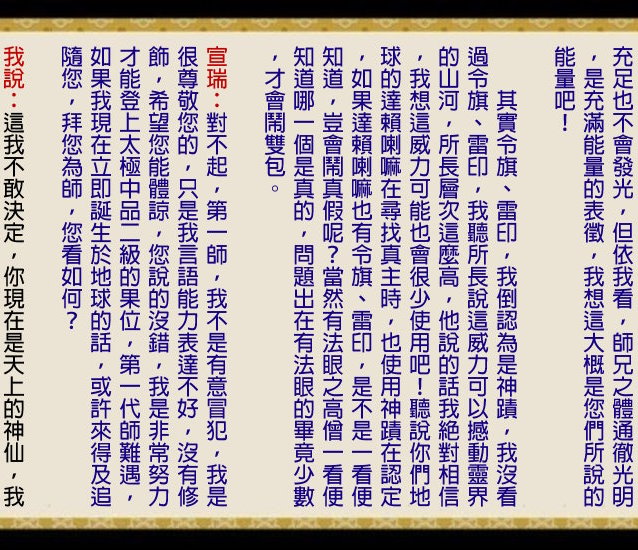 充足也不會發光，但依我看，師兄之體通徹光明
，是充滿能量的表徵，我想這大概是您們所說的
能量吧！
其實令旗、雷印，我倒認為是神蹟，我沒看
過令旗、雷印，我聽所長說這威力可以撼動靈界
的山河，所長層次這麼高，他說的話我絕對相信
，我想這威力可能也會很少使用吧！聽說你們地
球的達賴喇嘛在尋找真主時，也使用神蹟在認定
，如果達賴喇嘛也有令旗、雷印，是不是一看便
知道，豈會鬧真假呢？當然有法眼之高僧一看便
知道哪一個是真的，問題出在有法眼的畢竟少數
，才會鬧雙包。
宣瑞：對不起，第一師，我不是有意冒犯，我是
很尊敬您的，只是我言語能力表達不好，沒有修
飾，希望您能體諒，您說的沒錯，我是非常努力
才能登上太極中品二級的果位，第一代師難遇，
如果我現在立即誕生於地球的話，或許來得及追
隨您，拜您為師，您看如何？
我說：這我不敢決定，你現在是天上的神仙，我